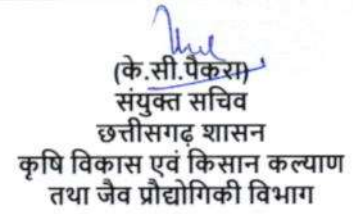 (के.सी.पैकरा)
संयुक्त सचिव
छत्तीसगढ़ शासन
कृषि विकास एवं किसान कल्याण
तथा जैव प्रौद्योगिकी विभाग